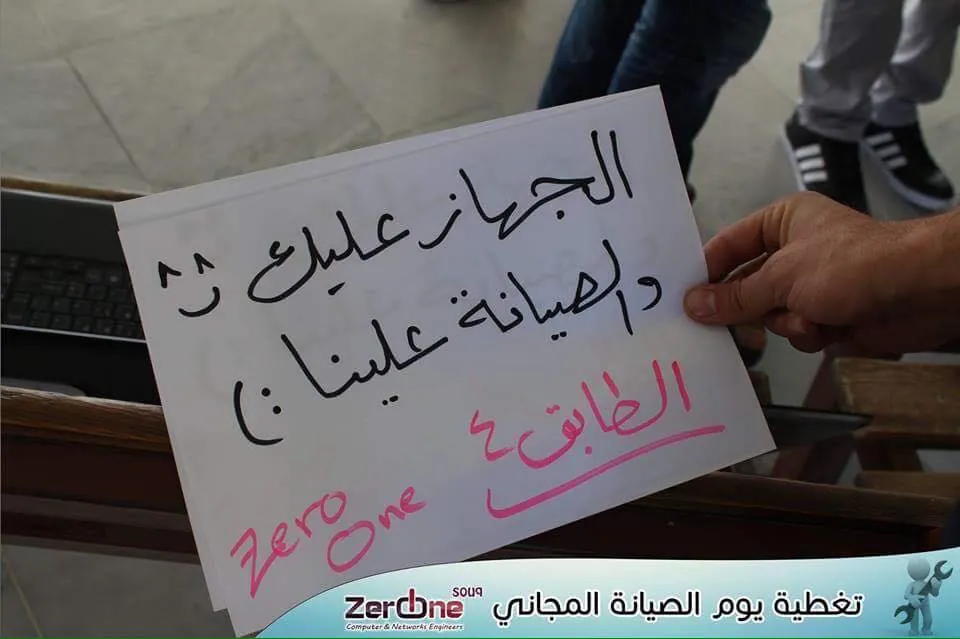 الجهاز عليك ^^
والصيانة علينا :)
الطابق ٤
Zero
One
تغطية يوم الصيانة المجاني
ZeroOne souq
Computer & Networks Engineers